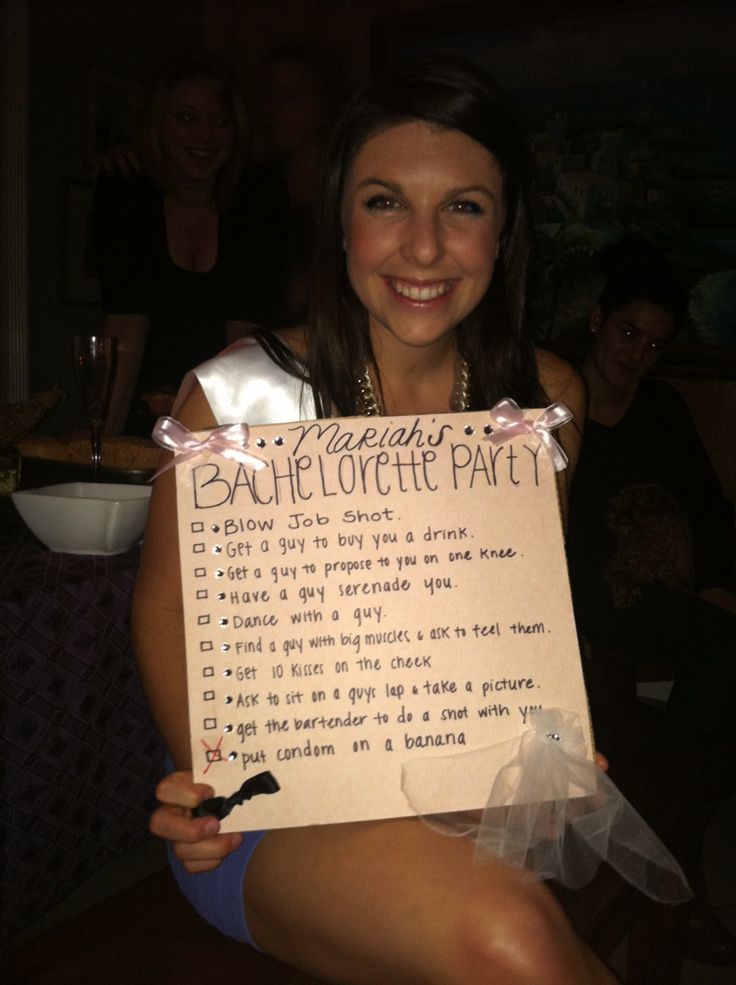 Mariah's
Bachelorette Party
Blow Job Shot.
Get a guy to buy you a drink.
Get a guy to propose to you on one knee.
Have a guy serenade you.
Dance with a guy.
Find a guy with big muscles & ask to feel them.
Get 10 kisses on the cheek
Ask to sit on a guys lap & take a picture.
get the bartender to do a shot with you
put condom on a banana